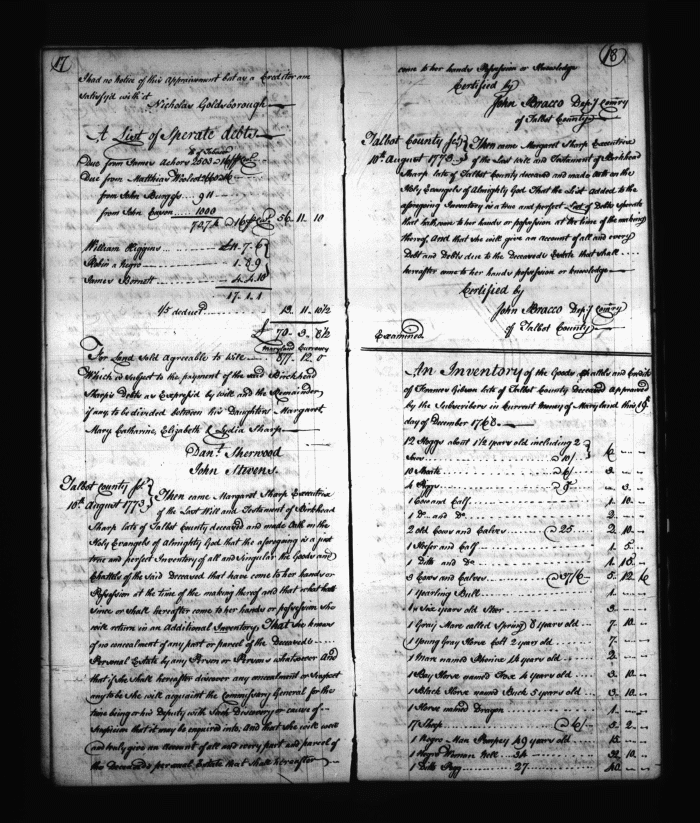 17
I had no notice of this Appraisement but as a Creditor am
satisfyd with it
Nicholas Goldsborough
A List of Sperate debts
Due from James Achers 2503
Due from Matthias
from John Burgess 911
from John 1000
7274 56. 11. 10
William Higgins 11. 7. 6
Robin a Negro 1. 8. 9
James Barnett 4. 4. 10
17. 1. 1
1/5 deduct 13. 11. 10½
£ 70. 3. 8½
Maryland Currency
For Land sold agreeable to Will 877. 12. 0
Which is subject to the payment of the said Birckhead
Sharps Debts as Expressd by will and the Remainder
if any to be divided between his Daughters Margaret
Mary Catharine, Elizabeth & Lydia Sharp
Danl. Sherwood
John Stevens.
Talbot County Sct.
10th August 1773
Then came Margaret Sharp Executrix
of the Last Will and Testament of Birckhead
Sharp late of Talbot County deceased and made Oath on the
Holy Evangels of Almighty God that the aforegoing is a just
true and perfect Inventory of all and singular the Goods and
Chattels of the said Deceased that have come to her hands or
Possession at the time of the making thereof and that what hath
since or shall hereafter come to her hands or possession she
will return in an Additional Inventory, That she knows
of no concealment of any part or parcel of the Deceaseds
Personal Estate by any Person or Persons whatsoever And
that if she shall hereafter discover any concealment or suspect
any to be She will acquaint the Commissary General for the
time being or his Deputy with such Discovery or cause of
Suspicion that it may be enquired into, And that she will well
and truly give an Account of all and every part and parcel of
the Deceaseds personal Estate that shall hereafter
18
come to her hands Possession or Knowledge
Certified by
John Bracco Depy Comry
of Talbot County
Talbot County Sct.
10th August 1773
Then came Margaret Sharp Executrix
of the Last Will and Testament of Birckhead
Sharp late of Talbot County deceased and made Oath on the
Holy Evangels of Almighty God That the List added to the
aforegoing Inventory is a true and perfect List of Debts Sperate
that hath come to her hands or possession at the time of the making
thereof, And that she will give an account of all and every
Debt and Debts due to the Deceaseds Estate that shall
hereafter come to her hands possession or knowledge
Certified by
John Bracco Depy Comry
of Talbot County
Examined
An Inventory of the Goods Chattels and Credits
of Gibson late of Talbot County deceased appraised
by the Subscribers in Current Money of Maryland this 19th
day of December 1768
12 Hoggs about 1½ years old including 2
Sows 10/ 6
10 Shoats 6/ 3
4 Piggs 9d 3
1 Cow and Calf 1. 10
1 Do and Do 2
2 old Cows and Calves 25 2. 10
1 Heifer and Calf 1. 5
1 Ditto and Do 1. 10
3 Cows and Calves 37/6 5. 12. 6
1 Yearling Bull 1
1 Six years old Steer 3
1 Gray Mare called Spring 8 years old 7. 10
1 Young Gray Horse Colt 2 years old 7
1 Mare named Phenix 14 years old 2
1 Bay Horse named Fox 4 years old 3. 10
1 Black Horse named Buck 5 years old 3. 10
1 Horse named Dragon 1
17 Sheep 6/ 5. 2
1 Negro Man Pompey 49 years old 15
1 Negro Woman Nell 34 32. 10
1 Ditto Pegg 27 40